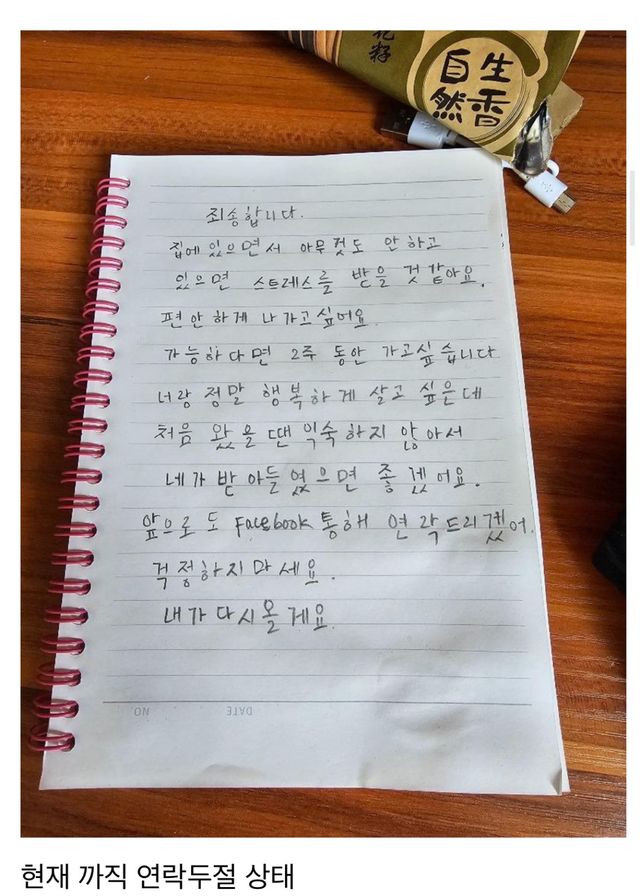 花籽
自生
然香
죄송합니다.
집에 있으면서 아무것도 안 하고
있으면 스트레스를 받을 것 같아요.
편안하게 나가고싶어요.
가능하다면 2주 동안 가고싶습니다.
너랑 정말 행복하게 살고 싶은데
처음 왔을땐 익숙하지 않아서
네가 받아들였으면 좋겠어요.
앞으로도 Facebook 통해 연락드리겠어.
걱정하지마세요.
내가다시올게요.
NO. DATE
현재 까직 연락두절 상태